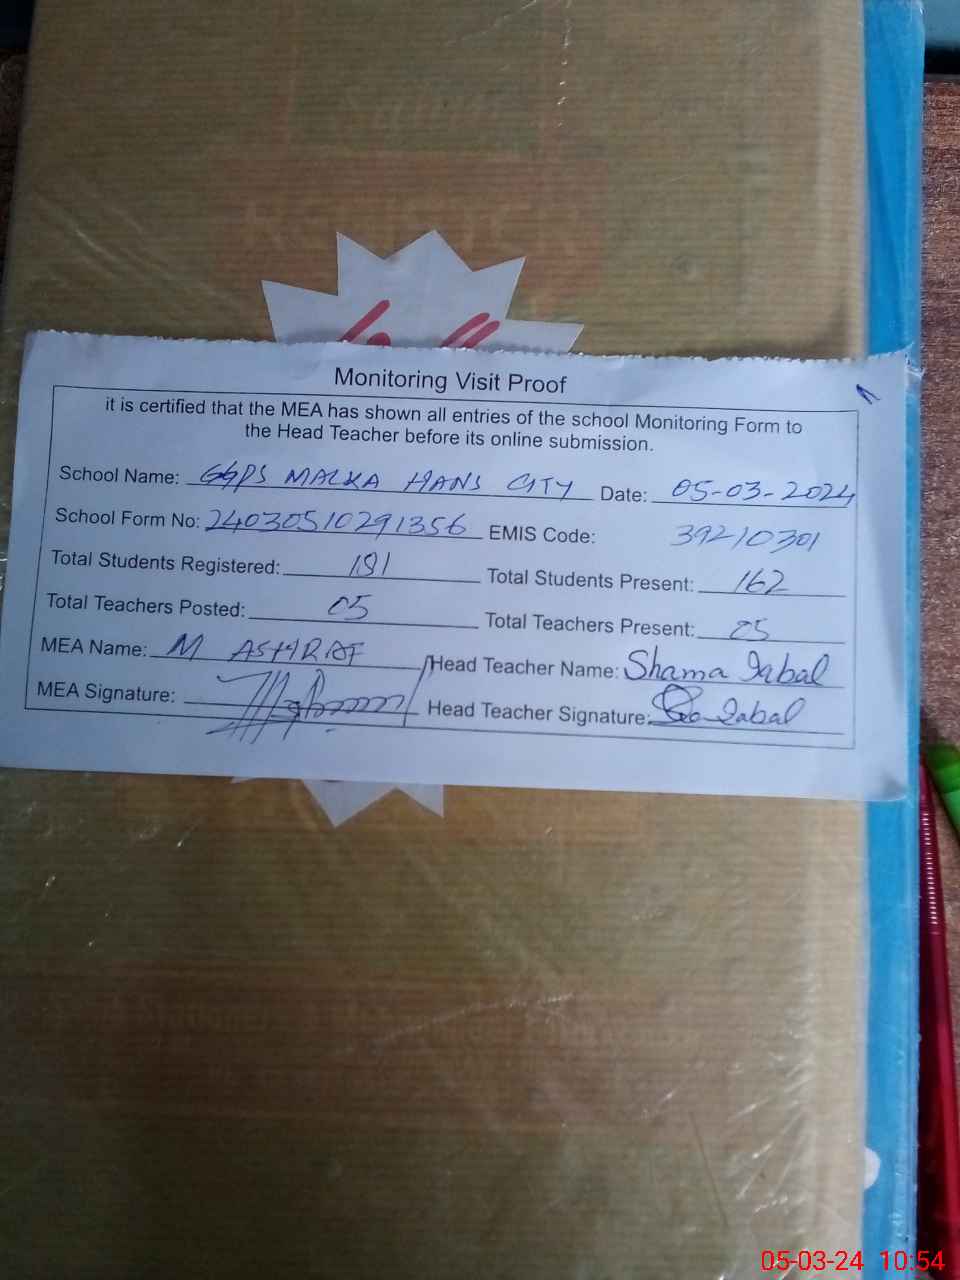 Monitoring Visit Proof
it is certified that the MEA has shown all entries of the school Monitoring Form to
the Head Teacher before its online submission.
School Name: GGPS MALKA HANS CITY Date: 05-03-2024
School Form No: 24030510291356 EMIS Code: 39210301
Total Students Registered: 181 Total Students Present: 162
Total Teachers Posted: 05 Total Teachers Present: 05
MEA Name: M ASHRAF Head Teacher Name: Shama Iqbal
MEA Signature: Head Teacher Signature: Iqbal
05-03-24 10:54